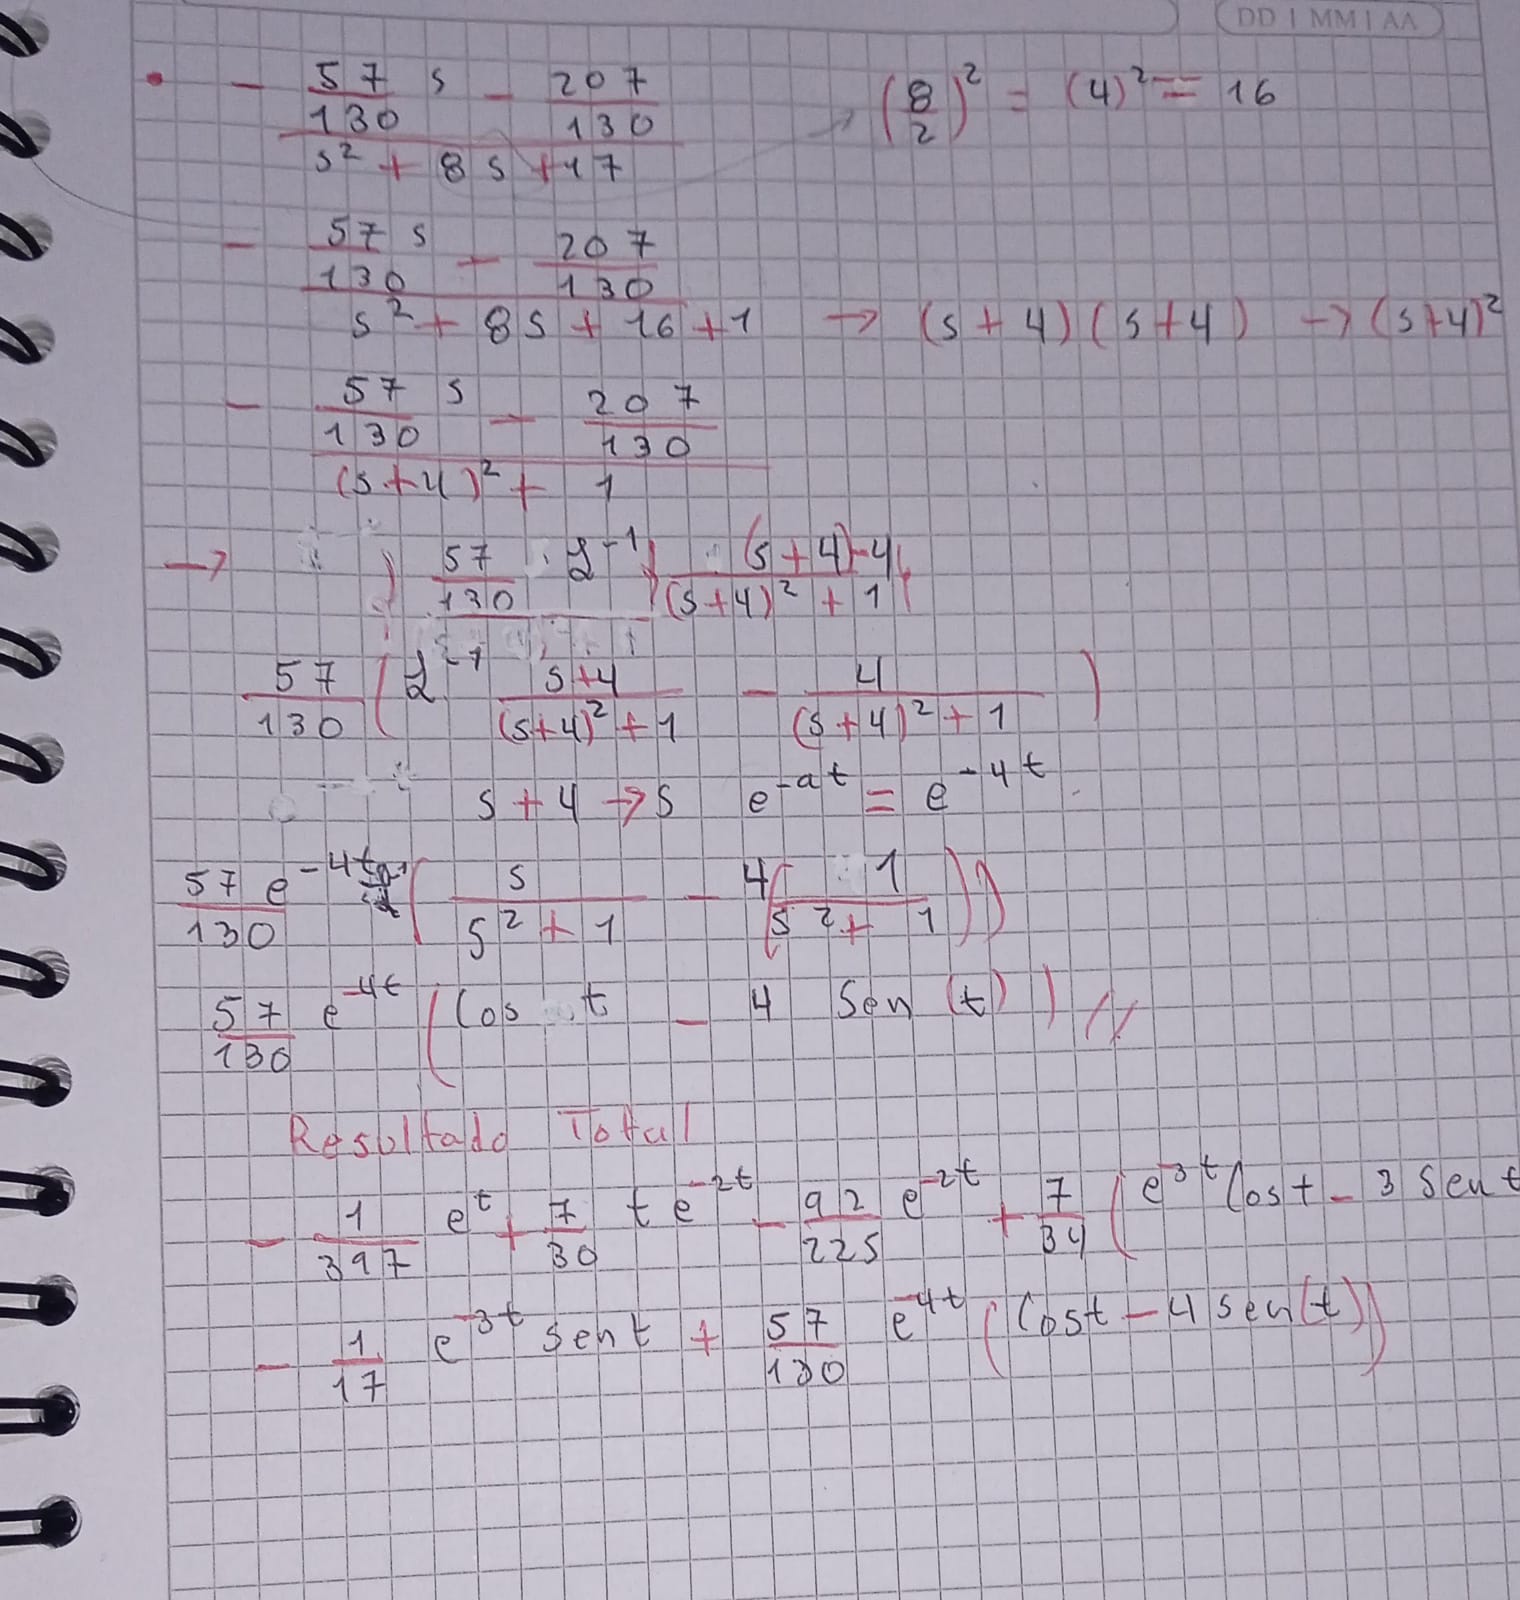 DD | MM | AA
• - 57/130 s - 207/130 (8/2)² = (4)² = 16
s² + 8s + 17
- 57/130 s - 207/130
s² + 8s + 16 + 1 → (s + 4)(s + 4) → (s+4)²
- 57/130 s - 207/130
(s+4)² + 1
→ 57/130 · ℒ⁻¹ { (s+4)-4 / (s+4)² + 1 }
57/130 ( ℒ⁻¹ s+4 / (s+4)² + 1 - 4 / (s+4)² + 1 )
s + 4 → s e^-at = e^-4t
57/130 e^-4t ( s / s² + 1 - 4( 1 / s² + 1 ))
57/130 e^-4t ( Cos t - 4 Sen (t) ) //
Resultado Total
- 1/397 e^t + 7/30 t e^-2t - 92/225 e^-2t + 7/34 ( e^-3t Cos t - 3 Sen t
- 1/17 e^-3t sen t + 57/130 e^-4t ( Cos t - 4 sen(t))